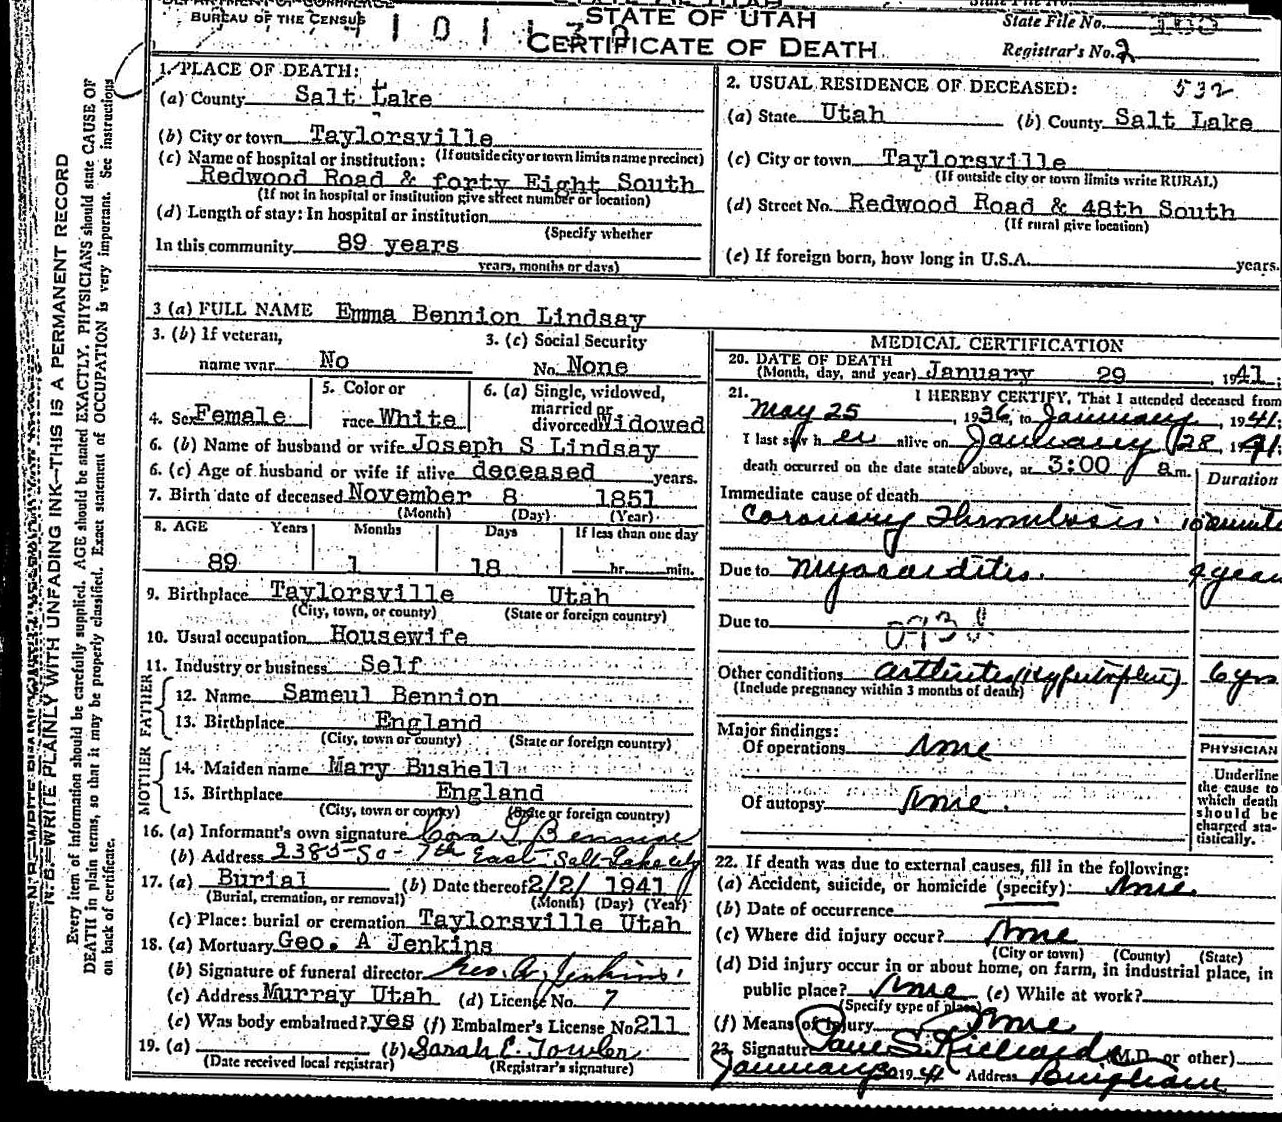 BUREAU OF THE CENSUS
STATE OF UTAH
CERTIFICATE OF DEATH
State File No.
Registrar's No. 2
1. PLACE OF DEATH:
(a) County Salt Lake
(b) City or town Taylorsville
(If outside city or town limits name precinct)
(c) Name of hospital or institution:
Redwood Road & forty Eight South
(If not in hospital or institution give street number or location)
(d) Length of stay: In hospital or institution
(Specify whether
In this community 89 years
years, months or days)
2. USUAL RESIDENCE OF DECEASED: 532
(a) State Utah (b) County Salt Lake
(c) City or town Taylorsville
(If outside city or town limits write RURAL)
(d) Street No. Redwood Road & 48th South
(If rural give location)
(e) If foreign born, how long in U.S.A. years.
3 (a) FULL NAME Emma Bennion Lindsay
3. (b) If veteran,
name war No
3. (c) Social Security
No. None
4. Sex Female
5. Color or
race White
6. (a) Single, widowed,
married or
divorced Widowed
6. (b) Name of husband or wife Joseph S Lindsay
6. (c) Age of husband or wife if alive deceased years.
7. Birth date of deceased November 8 1851
(Month) (Day) (Year)
8. AGE Years Months Days If less than one day
89 1 18 hr. min.
9. Birthplace Taylorsville Utah
(City, town, or county) (State or foreign country)
10. Usual occupation Housewife
11. Industry or business Self
FATHER
12. Name Sameul Bennion
13. Birthplace England
(City, town or county) (State or foreign country)
MOTHER
14. Maiden name Mary Bushell
15. Birthplace England
(City, town or county) (State or foreign country)
16. (a) Informant's own signature Cora L Bennion
(b) Address 2385 So - 7th East Salt Lake City
17. (a) Burial (b) Date thereof 2/2/ 1941
(Burial, cremation, or removal) (Month) (Day) (Year)
(c) Place: burial or cremation Taylorsville Utah
18. (a) Mortuary Geo. A Jenkins
(b) Signature of funeral director Geo. A. Jenkins
(c) Address Murray Utah (d) License No. 7
(e) Was body embalmed? yes (f) Embalmer's License No 211
19. (a) (b) Sarah E. Towler
(Date received local registrar) (Registrar's signature)
MEDICAL CERTIFICATION
20. DATE OF DEATH
(Month, day, and year) January 29, 1941;
21. I HEREBY CERTIFY, That I attended deceased from
May 25, 1936, to January, 1941;
I last saw her alive on January 28, 1941;
death occurred on the date stated above, at 3:00 a m.
Duration
Immediate cause of death
Coronary Thrombosis. 10 minute
Due to Myocarditis. year
Due to
093
Other conditions arthritis (Hypertrophic) 6 yrs
(Include pregnancy within 3 months of death)
Major findings:
Of operations None
Of autopsy None.
PHYSICIAN
Underline
the cause to
which death
should be
charged sta-
tistically.
22. If death was due to external causes, fill in the following:
(a) Accident, suicide, or homicide (specify): None
(b) Date of occurrence
(c) Where did injury occur? None
(City or town) (County) (State)
(d) Did injury occur in or about home, on farm, in industrial place, in
public place? None (e) While at work?
(Specify type of place)
(f) Means of Injury None
23. Signature Paul S. Richards (M.D. or other)
January 30 1941 Address Bingham
N. B.—WRITE PLAINLY WITH UNFADING INK—THIS IS A PERMANENT RECORD
Every item of information should be carefully supplied. AGE should be stated EXACTLY. PHYSICIANS should state CAUSE OF
DEATH in plain terms, so that it may be properly classified. Exact statement of OCCUPATION is very important. See instructions
on back of certificate.